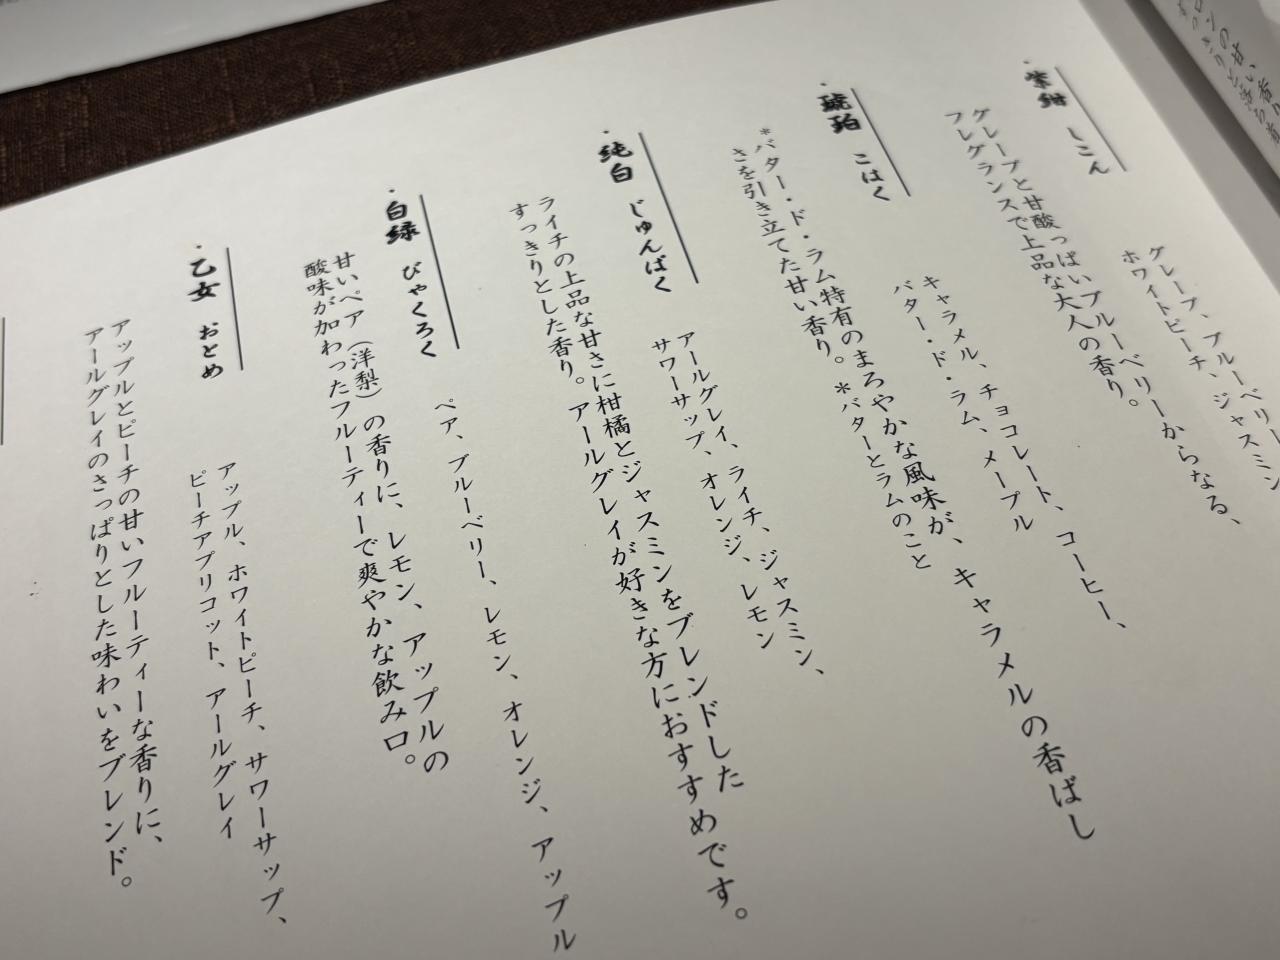 ・紫紺 しこん
グレープ、ブルーベリー
ホワイトピーチ、ジャスミン
グレープと甘酸っぱいブルーベリーからなる、
フレグランスで上品な大人の香り。
・琥珀 こはく
キャラメル、チョコレート、コーヒー、
バター・ド・ラム、メープル
＊バター・ド・ラム特有のまろやかな風味が、キャラメルの香ばし
さを引き立てた甘い香り。＊バターとラムのこと
・純白 じゅんぱく
アールグレイ、ライチ、ジャスミン、
サワーサップ、オレンジ、レモン
ライチの上品な甘さに柑橘とジャスミンをブレンドした
すっきりとした香り。アールグレイが好きな方におすすめです。
・白緑 びゃくろく
ペア、ブルーベリー、レモン、オレンジ、アップル
甘いペア（洋梨）の香りに、レモン、アップルの
酸味が加わったフルーティーで爽やかな飲み口。
・乙女 おとめ
アップル、ホワイトピーチ、サワーサップ、
ピーチアプリコット、アールグレイ
アップルとピーチの甘いフルーティーな香りに、
アールグレイのさっぱりとした味わいをブレンド。